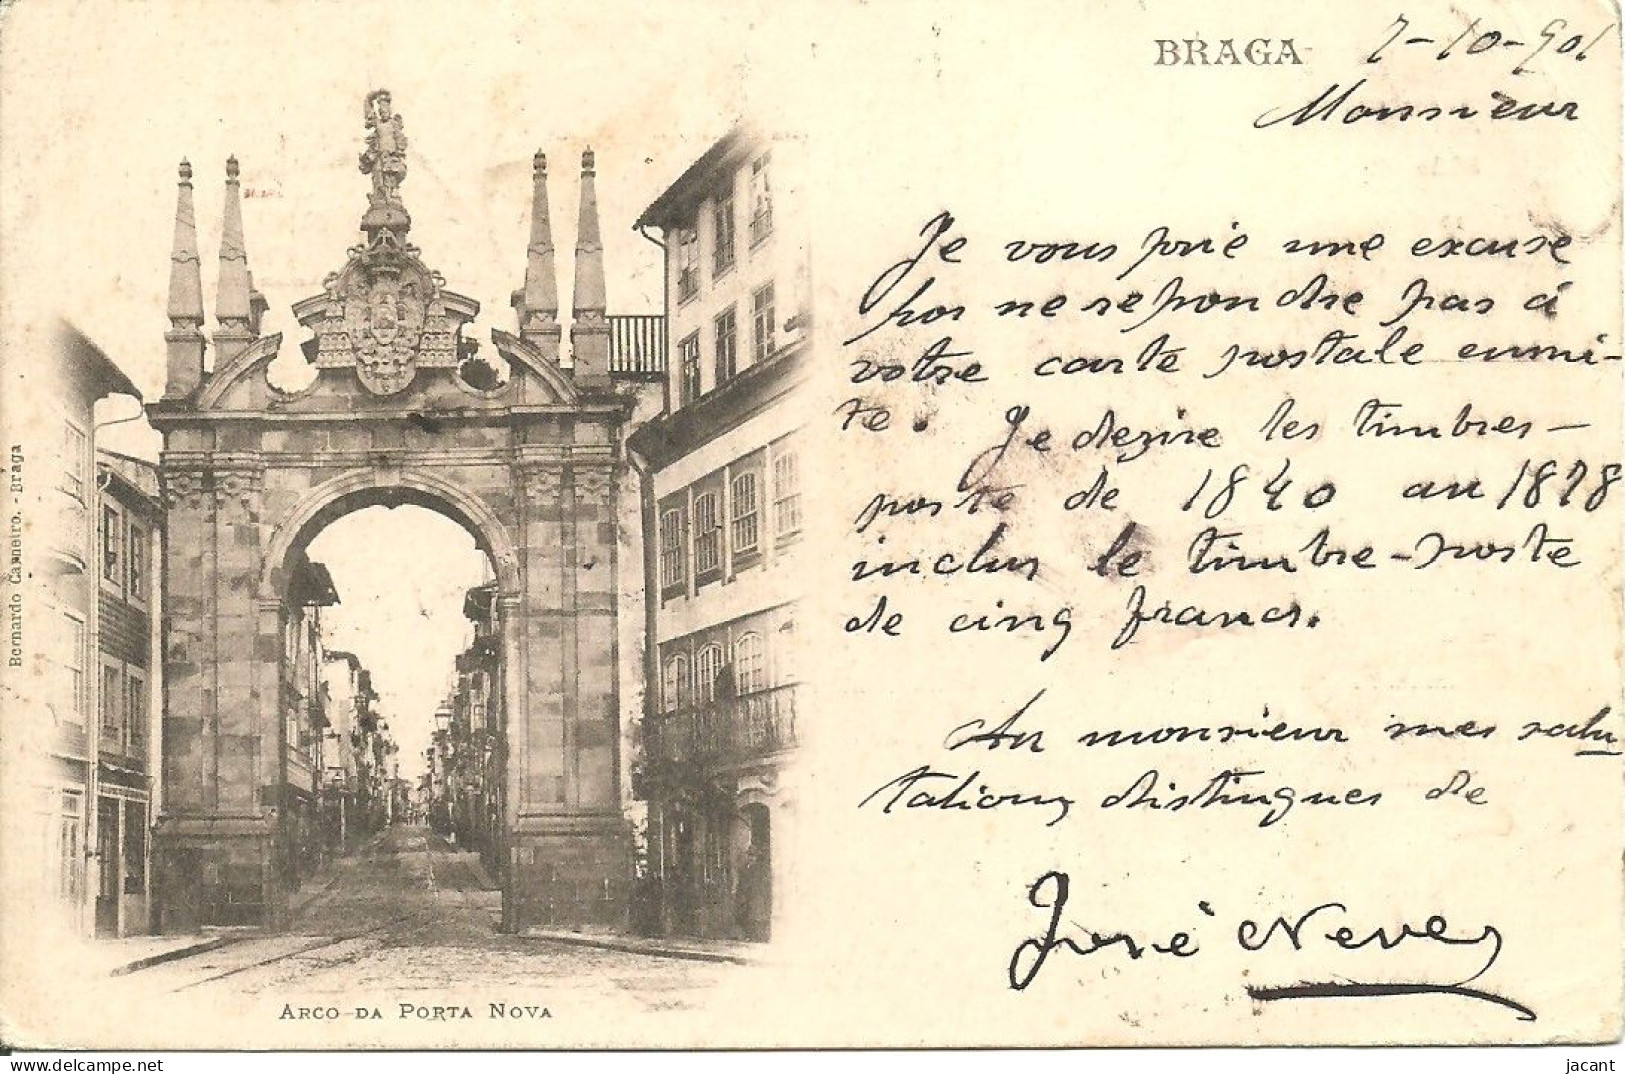 BRAGA 7-10-901
Monsieur
Je vous prie une excuse
por ne repondre pas á
votre carte postale enmi-
te. Je dezire les timbres-
poste de 1840 au 1878
inclus le timbre-poste
de cinq francs.
Au monsieur mes salu
tations distingues de
José Neves
Bernardo Carneiro. - Braga
ARCO DA PORTA NOVA
www.delcampe.net
jacant